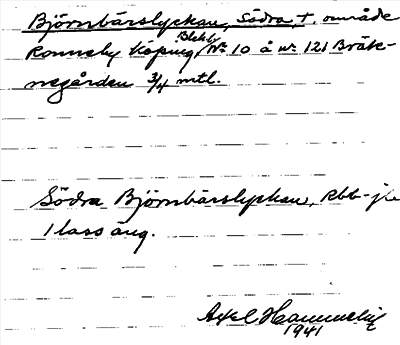 Björnbärslyckan, Södra, +. område
Ronneby Köping, Blek. Nr 10 å nr 121 Bräk-
negården 3/4 mtl.
Södra Björnbärslyckan, Rbb-jb
1 lass äng.
Axel Hammelin
1941